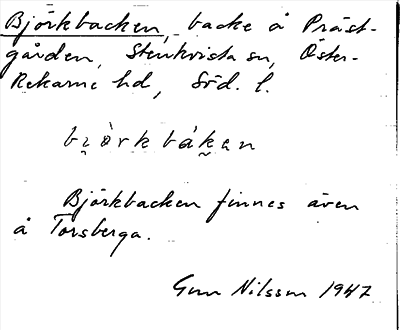 Björkbacken, backe å Präst-
gården, Stenkvista sn, Öster-
Rekarne hd, Söd. l.
bi̯òrkbákən
Björkbacken finnes även
å Torsberga.
Gun Nilsson 1947